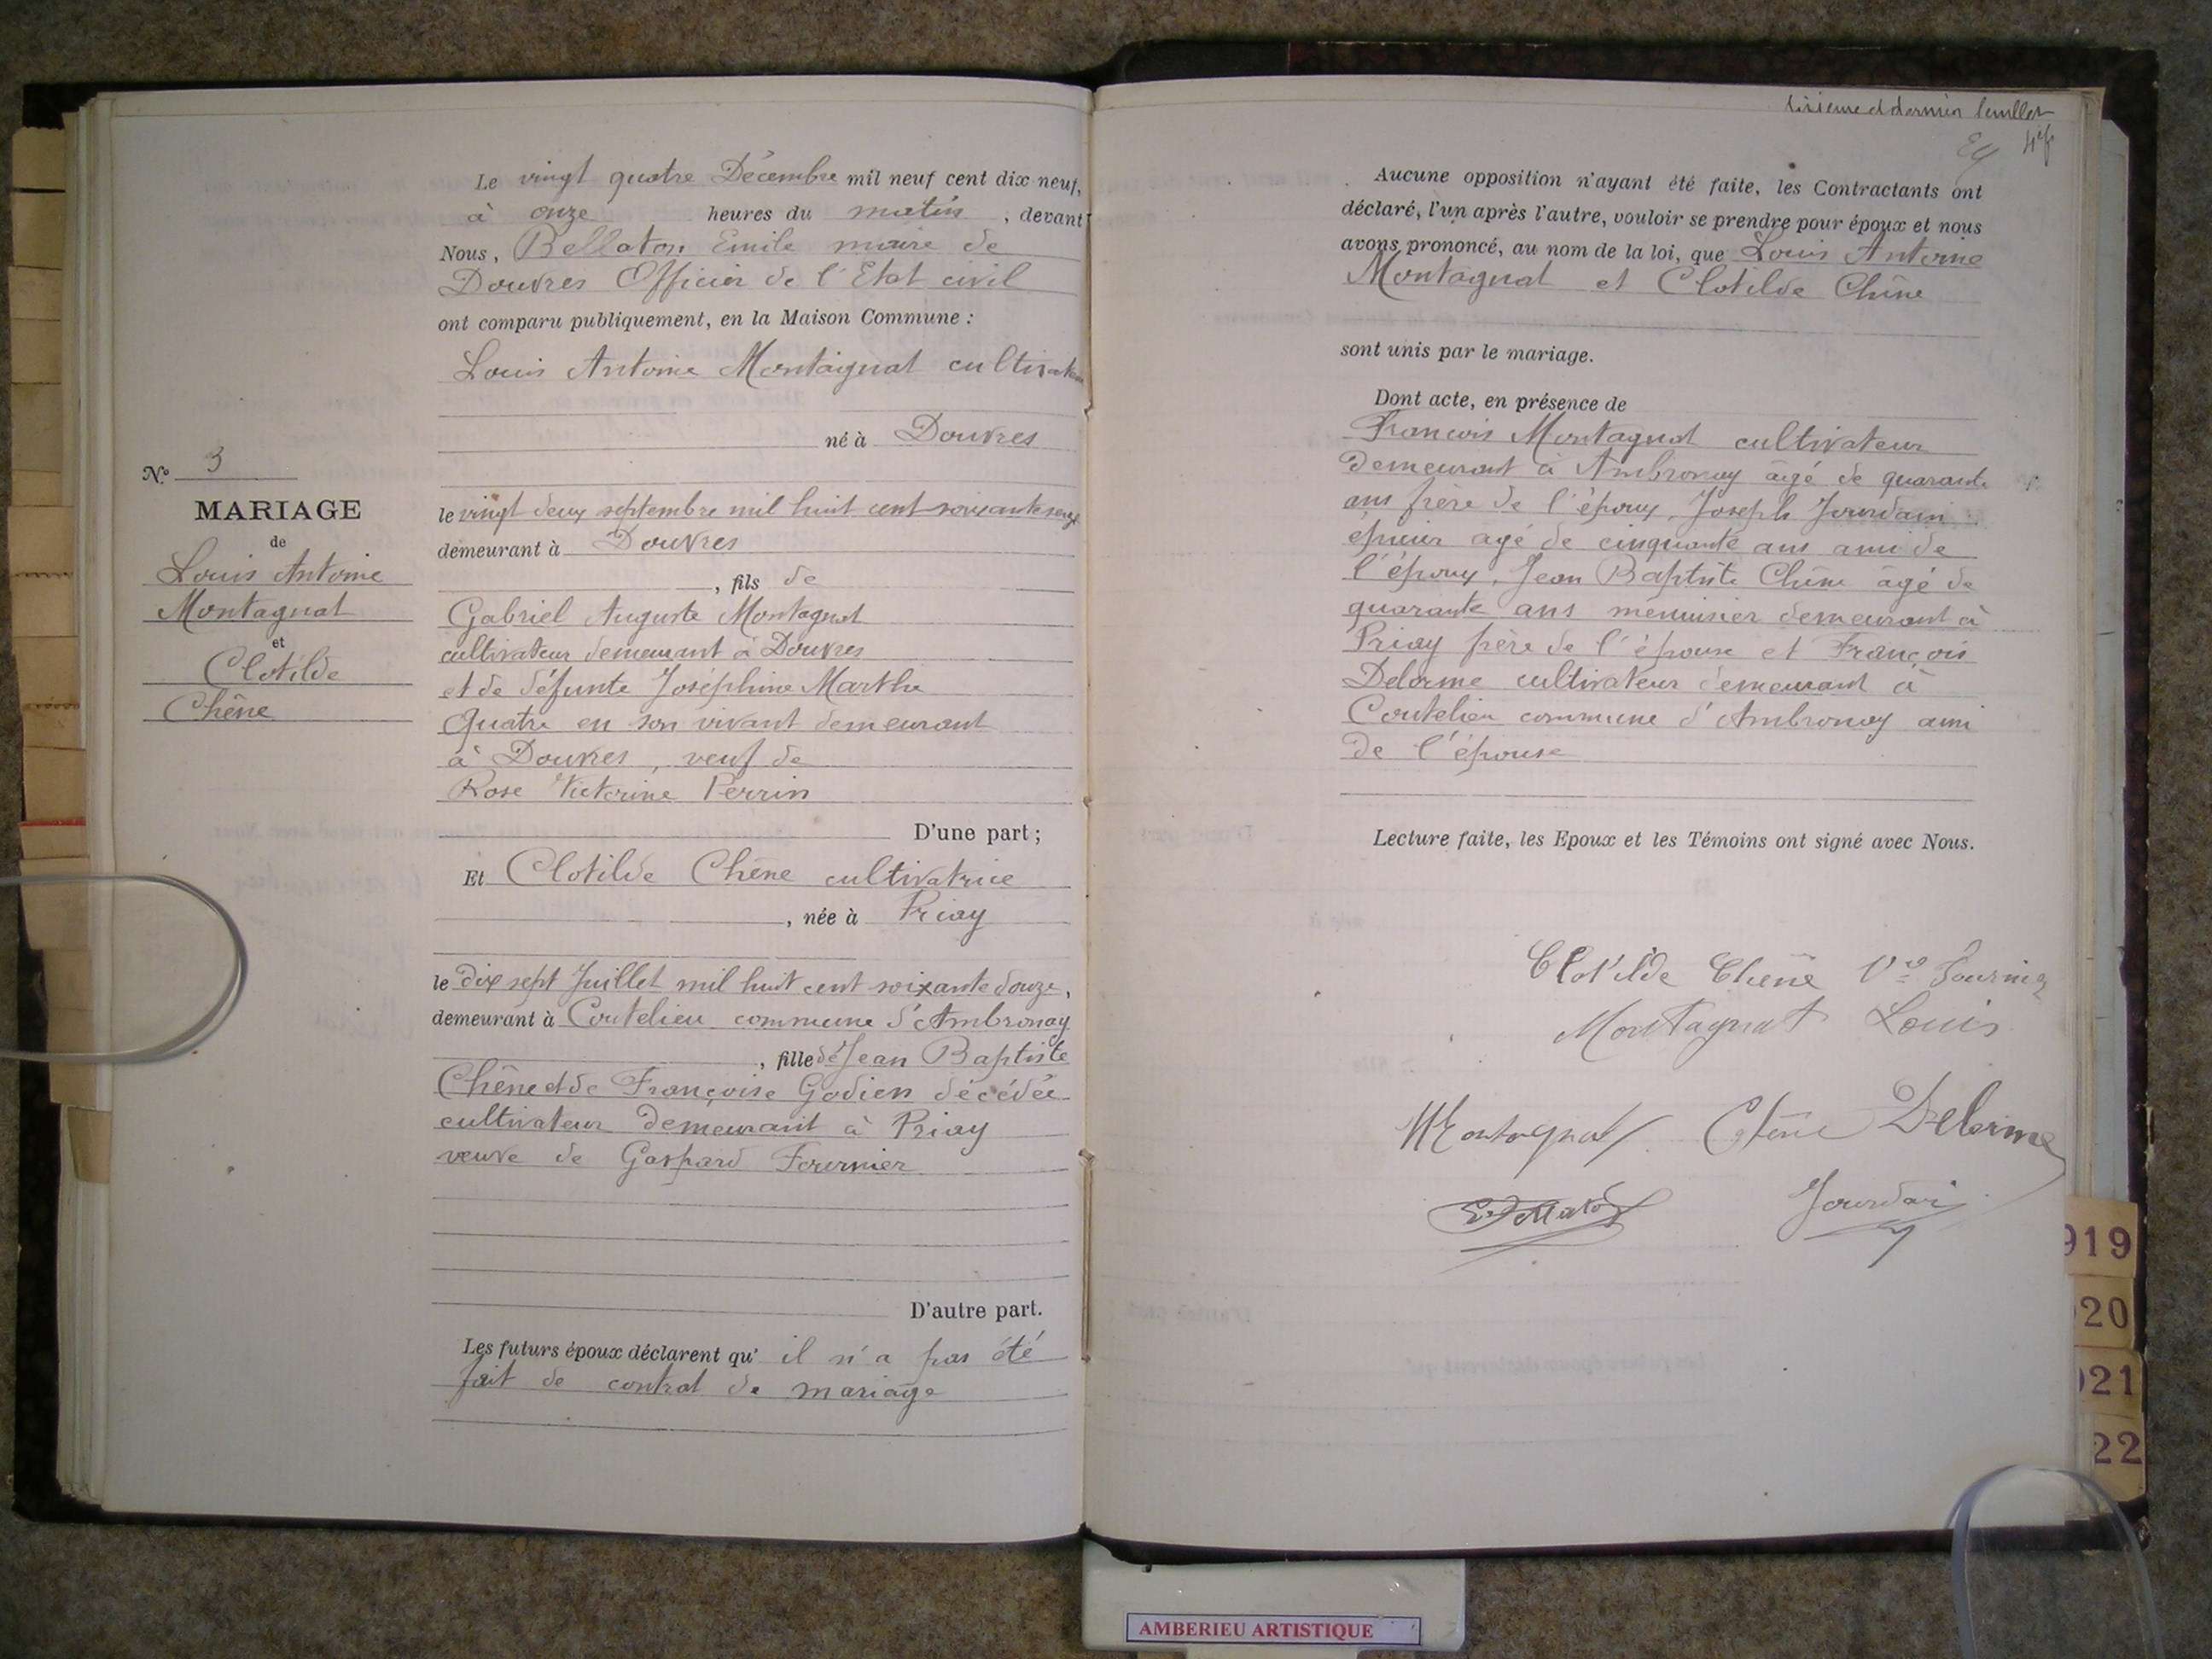 N° 3
MARIAGE
de
Louis Antoine
Montagnat
et
Clotilde
Chêne
Le vingt quatre Décembre mil neuf cent dix neuf,
à onze heures du matin, devant
Nous, Bellaton Emile maire de
Douvres Officier de l'Etat civil
ont comparu publiquement, en la Maison Commune :
Louis Antoine Montaignat cultivateur
né à Douvres
le vingt deux septembre mil huit cent soixante seize
demeurant à Douvres
, fils de
Gabriel Auguste Montagnat
cultivateur demeurant à Douvres
et de défunte Joséphine Marthe
Quatre en son vivant demeurant
à Douvres, veuf de
Rose Victorine Perrin
D'une part ;
Et Clotilde Chêne cultivatrice
, née à Priay
le dix sept Juillet mil huit cent soixante douze,
demeurant à Coutelieu commune d'Ambronay
, fille de Jean Baptiste
Chêne et de Françoise Godien décédée
cultivateur demeurant à Priay
veuve de Gaspard Fournier
D'autre part.
Les futurs époux déclarent qu' il n'a pas été
fait de contrat de mariage
et dernier feuillet
Aucune opposition n'ayant été faite, les Contractants ont
déclaré, l'un après l'autre, vouloir se prendre pour époux et nous
avons prononcé, au nom de la loi, que Louis Antoine
Montagnat et Clotilde Chêne
sont unis par le mariage.
Dont acte, en présence de
Francois Montagnat cultivateur
demeurant à Ambronay âgé de quarante
ans frère de l'époux, Joseph Jourdain
épicier agé de cinquante ans ami de
l'époux, Jean Baptiste Chêne âgé de
quarante ans menuisier demeurant à
Priay frère de l'épouse et François
Delorme cultivateur demeurant à
Coutelieu commune d'Ambronay ami
de l'épouse
Lecture faite, les Epoux et les Témoins ont signé avec Nous.
Clotilde Chêne Ve Fournier
Montagnat Louis
Montagnat Chêne Delorme
E Bellaton Jourdain
919
920
921
22
AMBERIEU ARTISTIQUE